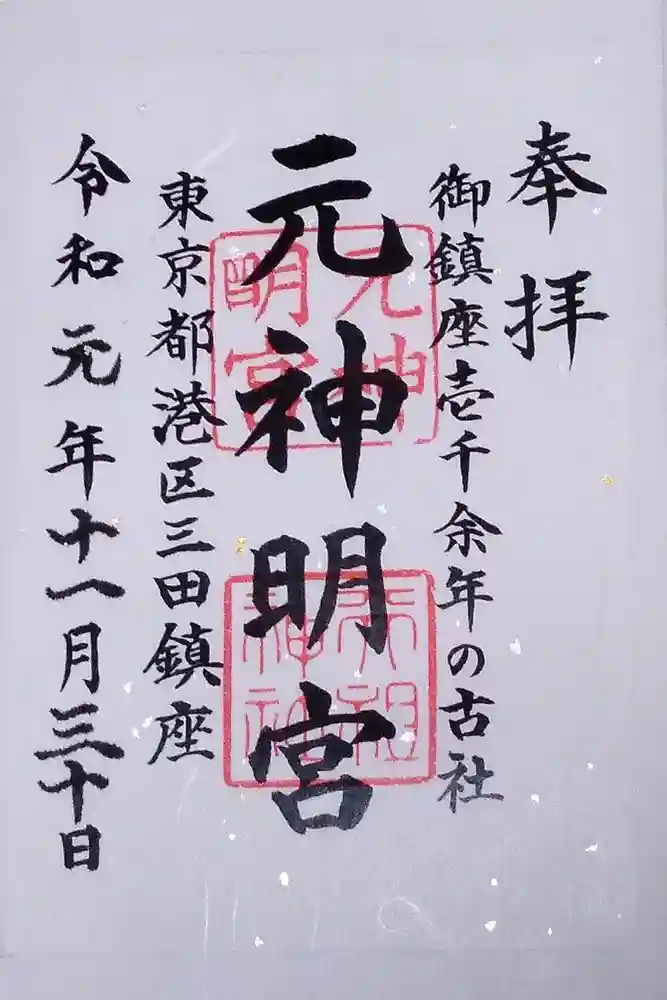 奉拝
御鎮座壱千余年の古社
元神明宮
元神
明宮
天祖
神社
東京都港区三田鎮座
令和元年十一月三十日